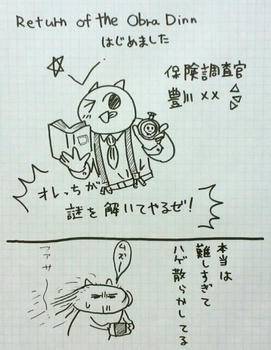 Return of the Obra Dinn
はじめました
保険調査官
豊川××
オレっちが
謎を解いてやるぜ!
本当は
難しすぎて
ハゲ散らかしてる
ムズー
ファサ